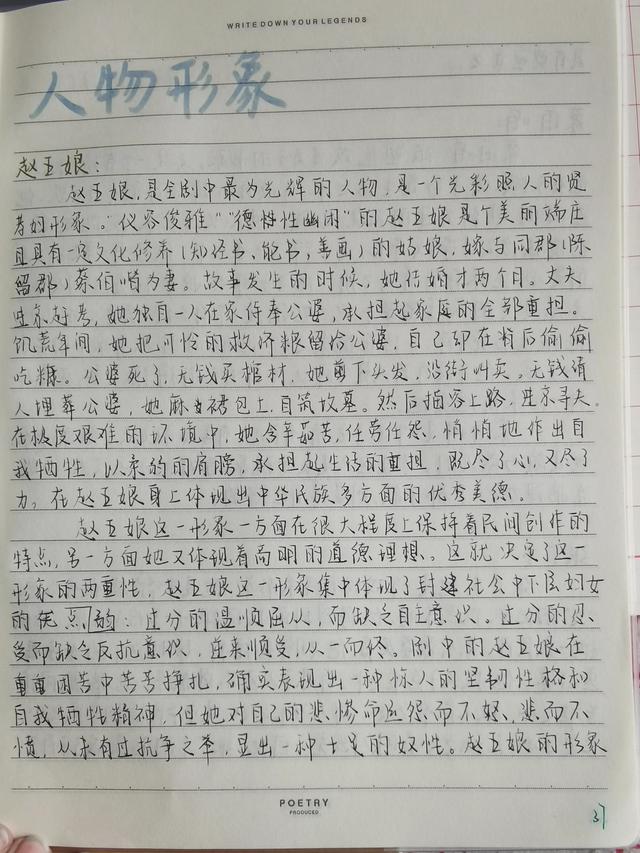 WRITE DOWN YOUR LEGENDS
人物形象
赵五娘:
赵五娘,是全剧中最为光辉的人物,是一个光彩照人的贤
孝妇形象。“仪容俊雅”“德性幽闲”的赵五娘是个美丽端庄
且具有一定文化修养(知经书,能书,善画)的姑娘,嫁与同郡(陈
留郡)蔡伯喈为妻。故事发生的时候,她结婚才两个月。丈夫
进京赶考,她独自一人在家侍奉公婆,承担起家庭的全部重担。
饥荒年间,她把可怜的救济粮留给公婆,自己却在背后偷偷
吃糠。公婆死了,无钱买棺材,她剪下头发,沿街叫卖。无钱请
人埋葬公婆,她麻裙包土,自筑坟墓。然后描容上路,进京寻夫。
在极度艰难的环境中,她含辛茹苦,任劳任怨,悄悄地作出自
我牺牲,以柔弱的肩膀,承担起生活的重担,既尽了心,又尽了
力,在赵五娘身上体现出中华民族多方面的优秀美德。
赵五娘这一形象一方面在很大程度上保持着民间创作的
特点,另一方面她又体现着高明的道德理想、这就决定了这一
形象的两重性,赵五娘这一形象集中体现了封建社会中下层妇女
的优点的:过分的温顺屈从,而缺乏自主意识。过分的忍
受而缺乏反抗意识,逆来顺受,从一而终。剧中的赵五娘在
重重困苦中苦苦挣扎,确实表现出一种惊人的坚韧性格和
自我牺牲精神,但她对自己的悲惨命运怨而不怒、悲而不
愤,从未有过抗争之举,显出一种十足的奴性。赵五娘的形象
POETRY
PRODUCED
37